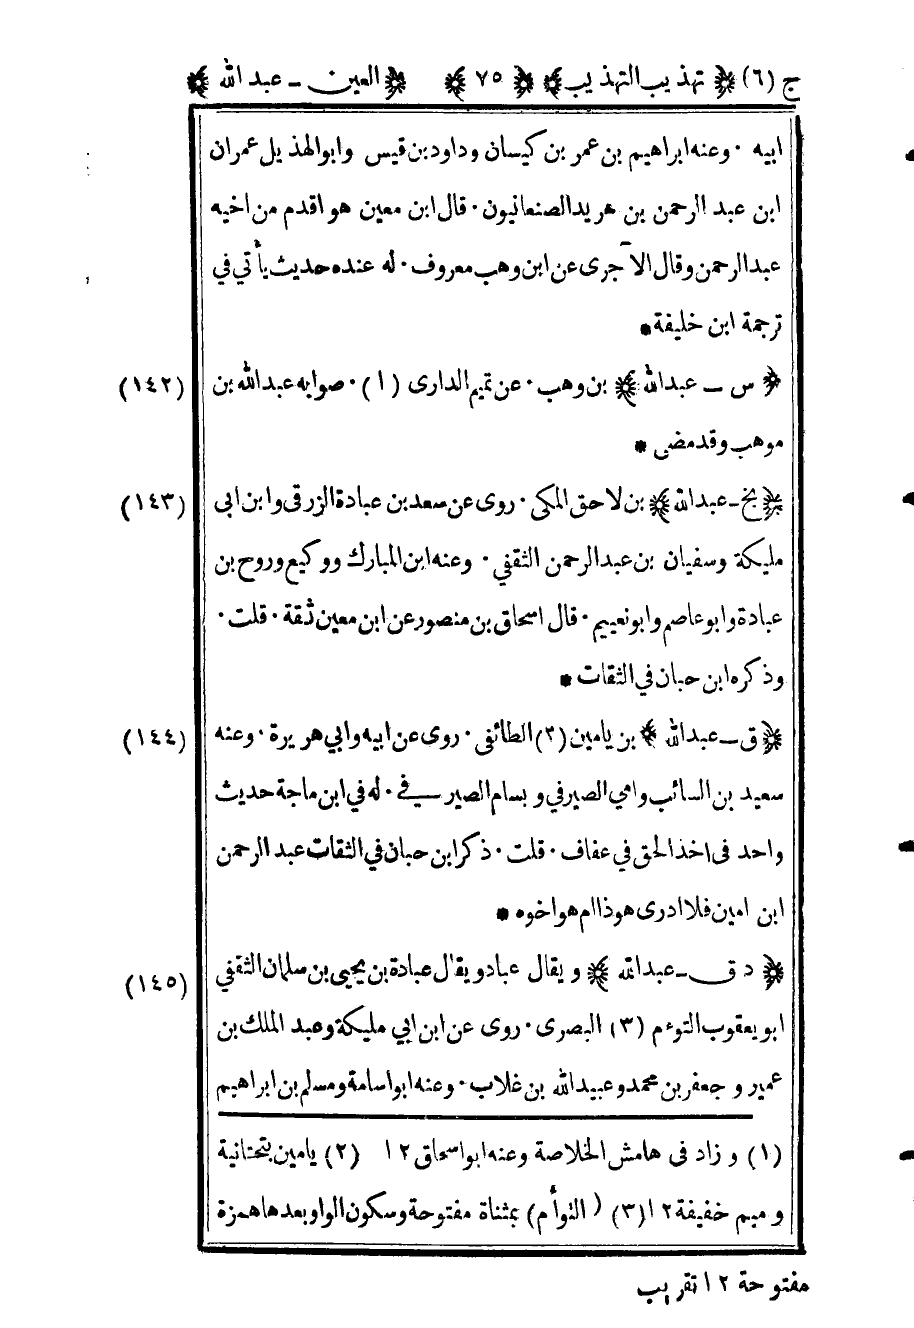 ج (٦) ﴿ تهذيب التهذيب ﴾ ﴿ ٧٥ ﴾ ﴿ العين ـ عبد الله ﴾
ابيه · وعنه ابراهيم بن عمر بن كيسان وداود بن قيس وابوالهذيل عمران
ابن عبد الرحمن بن هربد الصنعانيون · قال ابن معين هو اقدم من اخيه
عبدالرحمن وقال الآجرى عن ابن وهب معروف · له عنده حديث يأتي في
ترجمة ابن خليفة *
﴿ س ـ عبدالله ﴾ بن وهب · عن تميم الدارى (١) · صوابه عبدالله بن (١٤٢)
موهب وقد مضى *
﴿ بخ ـ عبدالله ﴾ بن لاحق المكي · روى عن سعد بن عبادة الزرقي وابن ابي (١٤٣)
مليكة وسفيان بن عبدالرحمن الثقفي · وعنه ابن المبارك ووكيع وروح بن
عبادة وابوعاصم وابونعيم · قال اسحاق بن منصور عن ابن معين ثقة · قلت ·
وذكره ابن حبان في الثقات *
﴿ ق ـ عبدالله ﴾ بن يامين (٢) الطائفى · روى عن ابيه وابي هريرة · وعنه (١٤٤)
سعيد بن السائب وامي الصيرفي وبسام الصيرفي · له في ابن ماجة حديث
واحد فى اخذ الحق في عفاف · قلت · ذكر ابن حبان في الثقات عبد الرحمن
ابن امين فلا ادرى هو ذا ام هو اخوه *
﴿ د ق ـ عبدالله ﴾ ويقال عباد ويقال عبادة بن يحيى بن سلمان الثقفي (١٤٥)
ابو يعقوب التوءم (٣) البصرى · روى عن ابن ابي مليكة وعبد الملك بن
عمير وجعفر بن محمد وعبيدالله بن غلاب · وعنه ابواسامة ومسلم بن ابراهيم
(١) وزاد فى هامش الخلاصة وعنه ابواسحاق ١٢ (٢) يامين بتحتانية
وميم خفيفة ١٢ (٣) (التوأم) بمثناة مفتوحة وسكون الواو بعدها همزة
مفتوحة ١٢ تقريب